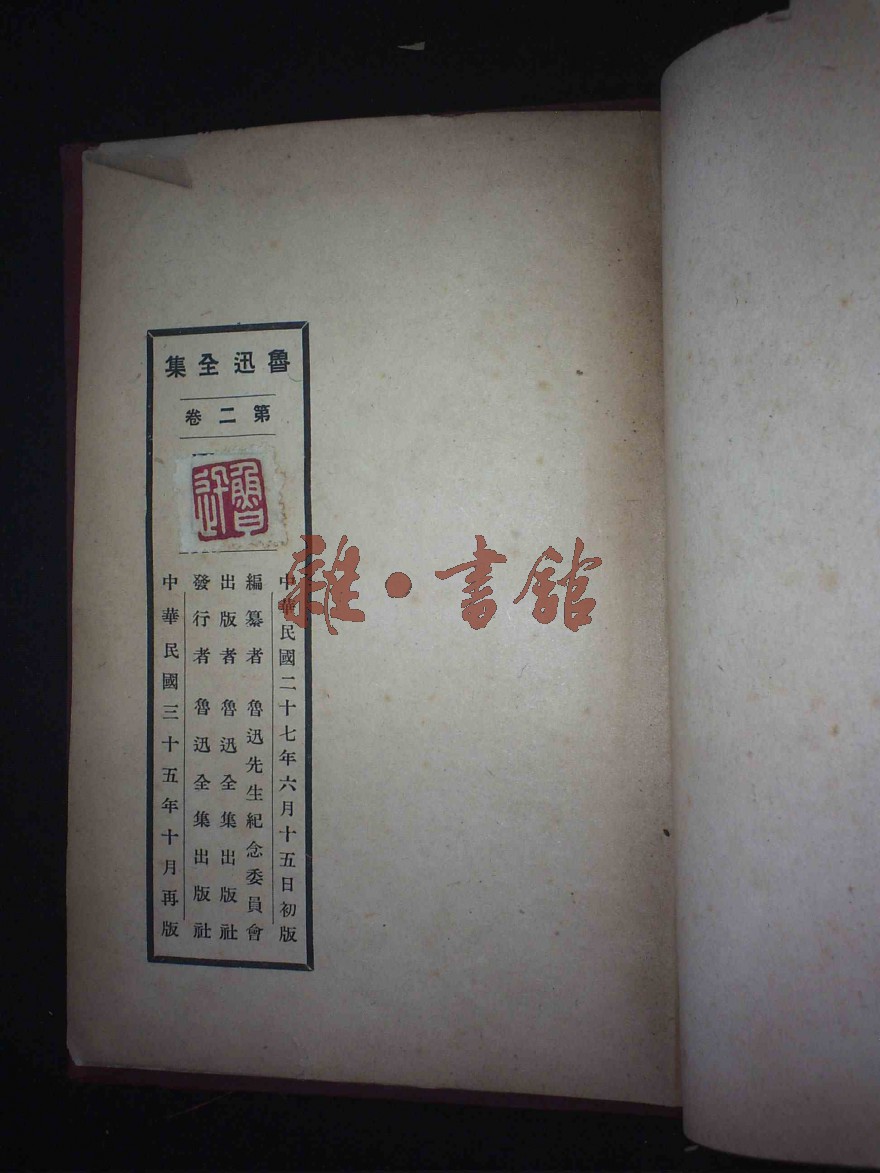 魯迅全集
第二卷
魯迅
中華民國二十七年六月十五日初版
編纂者 魯迅先生紀念委員會
出版者 魯迅全集出版社
發行者 魯迅全集出版社
中華民國三十五年十月再版
雜·書館